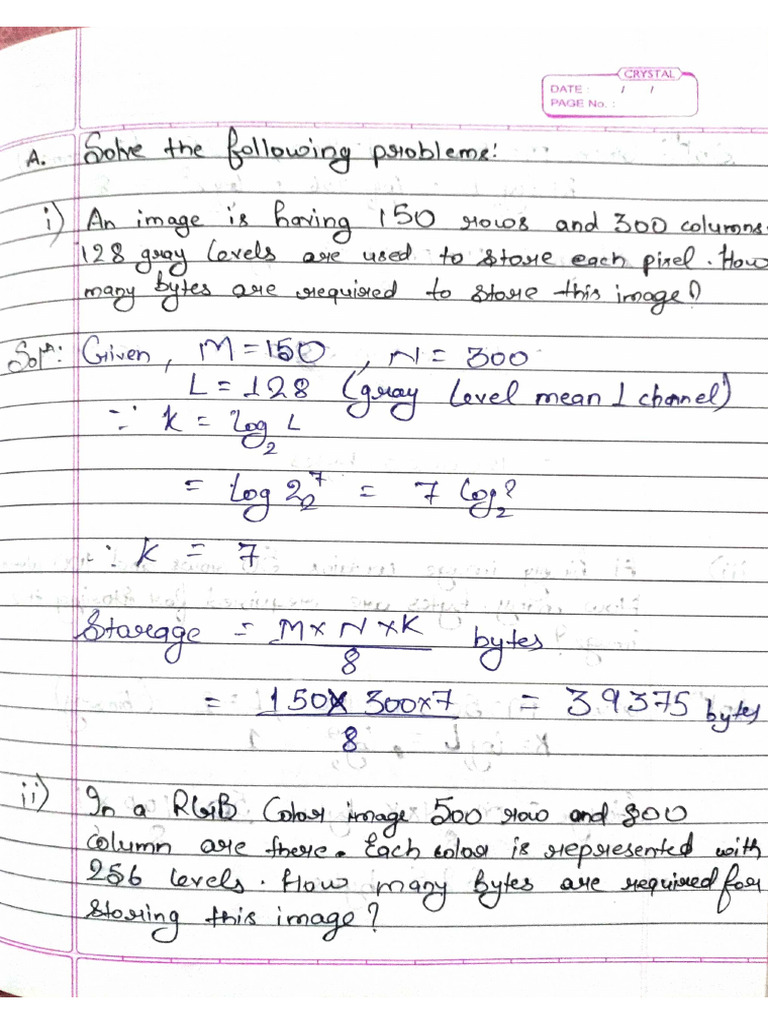 CRYSTAL
DATE : / /
PAGE No. :
A. Solve the following problems:
i) An image is having 150 rows and 300 columns.
128 gray levels are used to store each pixel. How
many bytes are required to store this image?
Solⁿ: Given, M = 150, N = 300
L = 128 (gray level mean 1 channel)
∵ K = log₂ L
= log₂ 2⁷ = 7 log₂ 2
∴ K = 7
Starage = M x N x K / 8 bytes
= 150 x 300 x 7 / 8 = 39375 bytes
ii) In a RGB Color image 500 row and 800
column are there. Each color is represented with
256 levels. How many bytes are required for
storing this image?